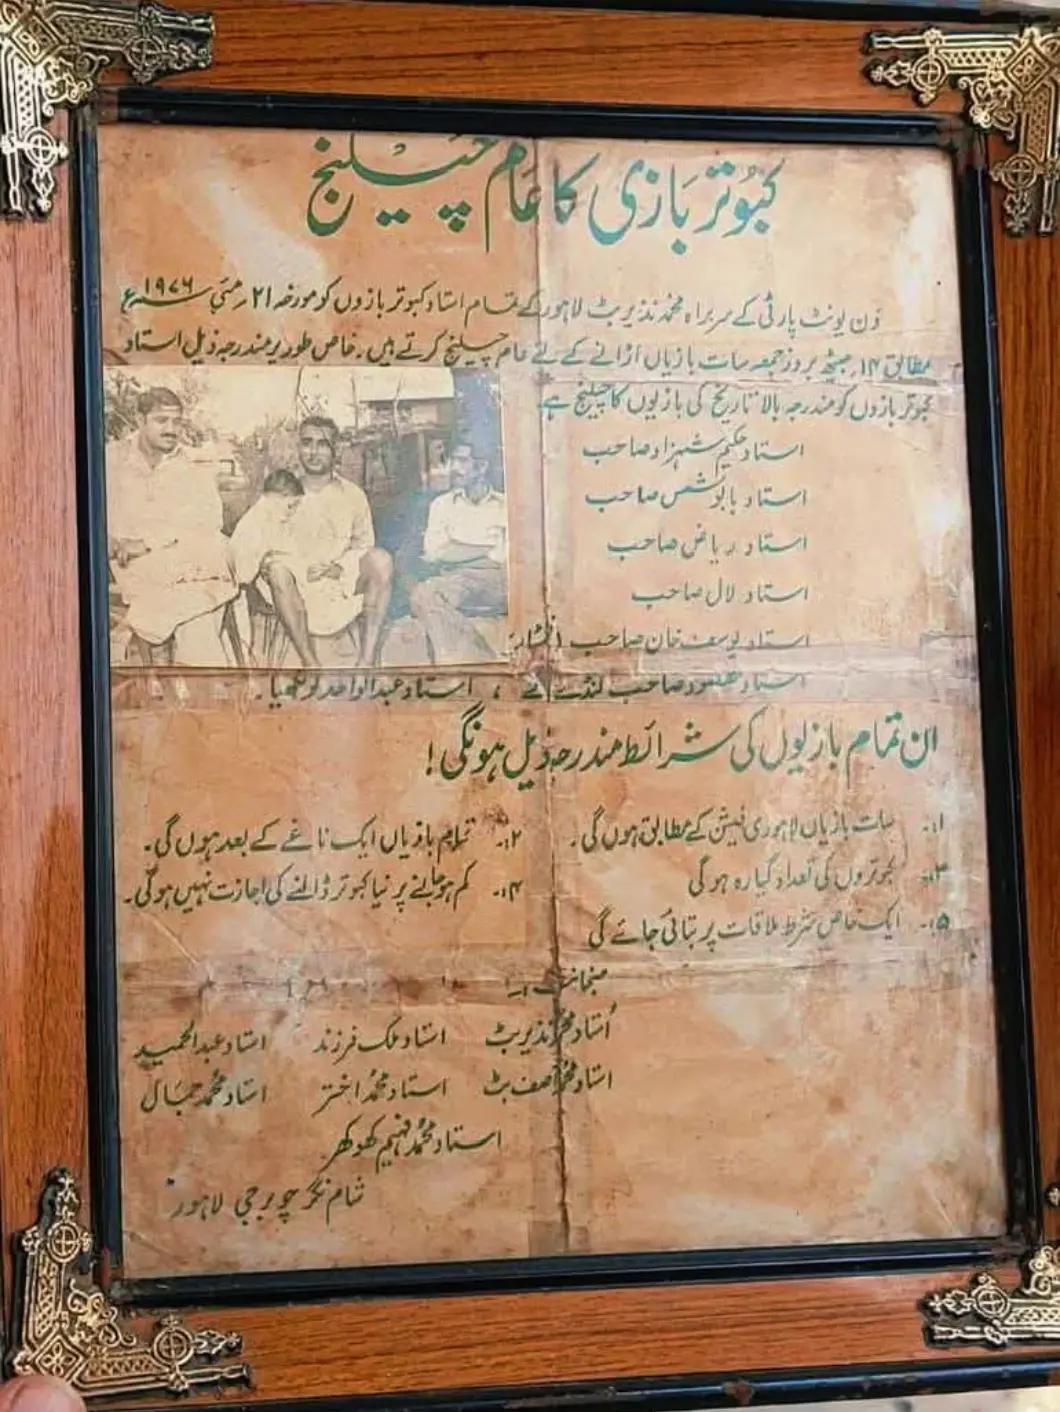 کبوتر بازی کا عام چیلنج
ون یونٹ پارٹی کے سربراہ محمد نذیر بٹ لاہور کے تمام استاد کبوتر بازوں کو مورخہ ۲۱ رمئی ۱۹۷۶ء
مطابق ۱۴ رجیٹھ بروز جمعہ سات بازیاں اڑانے کے لئے عام چیلنج کرتے ہیں۔ خاص طور پر مندرجہ ذیل استاد
کبوتر بازوں کو مندرجہ بالا تاریخ کی بازیوں کا چیلنج ہے
استاد حکیم شہزاد صاحب
استاد بابو شمس صاحب
استاد ریاض صاحب
استاد لال صاحب
استاد یوسف خان صاحب
استاد مقصود صاحب لنڈے ، استاد عبدالواحد
ان تمام بازیوں کی شرائط مندرجہ ذیل ہونگی!
۱:- سات بازیاں لاہوری فیشن کے مطابق ہوں گی۔ ۲:- تمام بازیاں ایک ناغے کے بعد ہوں گی۔
۳:- کبوتروں کی تعداد گیارہ ہو گی ۴:- کم ہو جانے پر نیا کبوتر ڈالنے کی اجازت نہیں ہو گی۔
۵:- ایک خاص شرط ملاقات پر بتائی جائے گی
منجانب :-
اُستاد محمد نذیر بٹ استاد ملک فرزند استاد عبدالحمید
استاد محمد آصف بٹ استاد محمد اختر استاد محمد جمال
استاد محمد فہیم کھوکھر
شام نگر چوبرجی لاہور